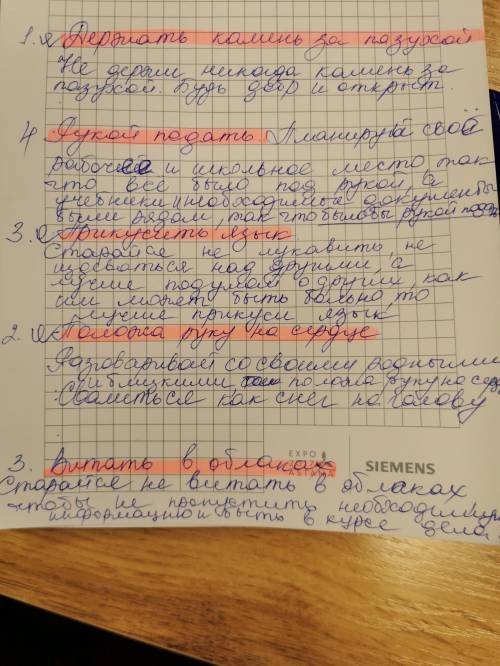 1. Держать камень за пазухой
Не держи никогда камень за
пазухой. Будь добр и открыт.
4 Рукой подать Планируй своё
рабочее и школьное место так
что всё было под рукой, а
учебники и необходимые документы
были рядом, так что было бы рукой
3. Прикусить язык
Старайся не лукавить, не
над другими, а
лучше подумай о других, как
им может быть больно, то
лучше прикуси язык
2. Положа руку на сердце
Разговаривай со своими родными
и близкими положа руку на
Свалиться как снег на голову
3. Витать в облаках
EXPO
ASTANA
SIEMENS
Старайся не витать в облаках
чтобы не пропустить необходимую
информацию и быть в курсе дела.